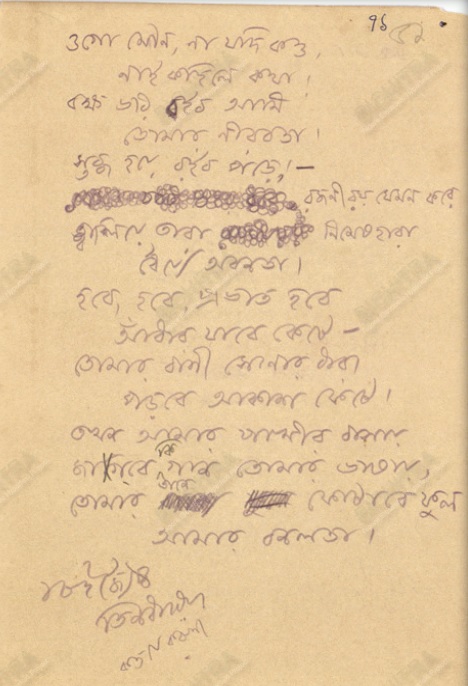 ৭৬ ৫১
ওগো মৌন, না যদি কও,
নাই কহিলে কথা।
বক্ষ ভরি বইব আমি
তোমার নীরবতা।
স্তব্ধ হয়ে রইব পড়ে,—
রজনী রয় যেমন করে
জ্বালিয়ে তারা নিমেষহারা
ধৈর্য্যে অবনতা।
হবে, হবে, প্রভাত হবে
আঁধার যাবে কেটে—
তোমার বাণী সোনার ধারা
পড়বে আকাশ ফেটে।
তখন আমার পাখীর বাসায়
জাগবে কি গান তোমার ভাষায়,
তোমার তানে ফোটাবে ফুল
আমার বনলতা।
জ্যৈষ্ঠ
তিনধরিয়া